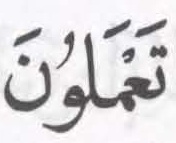 تَعْمَلُونَ